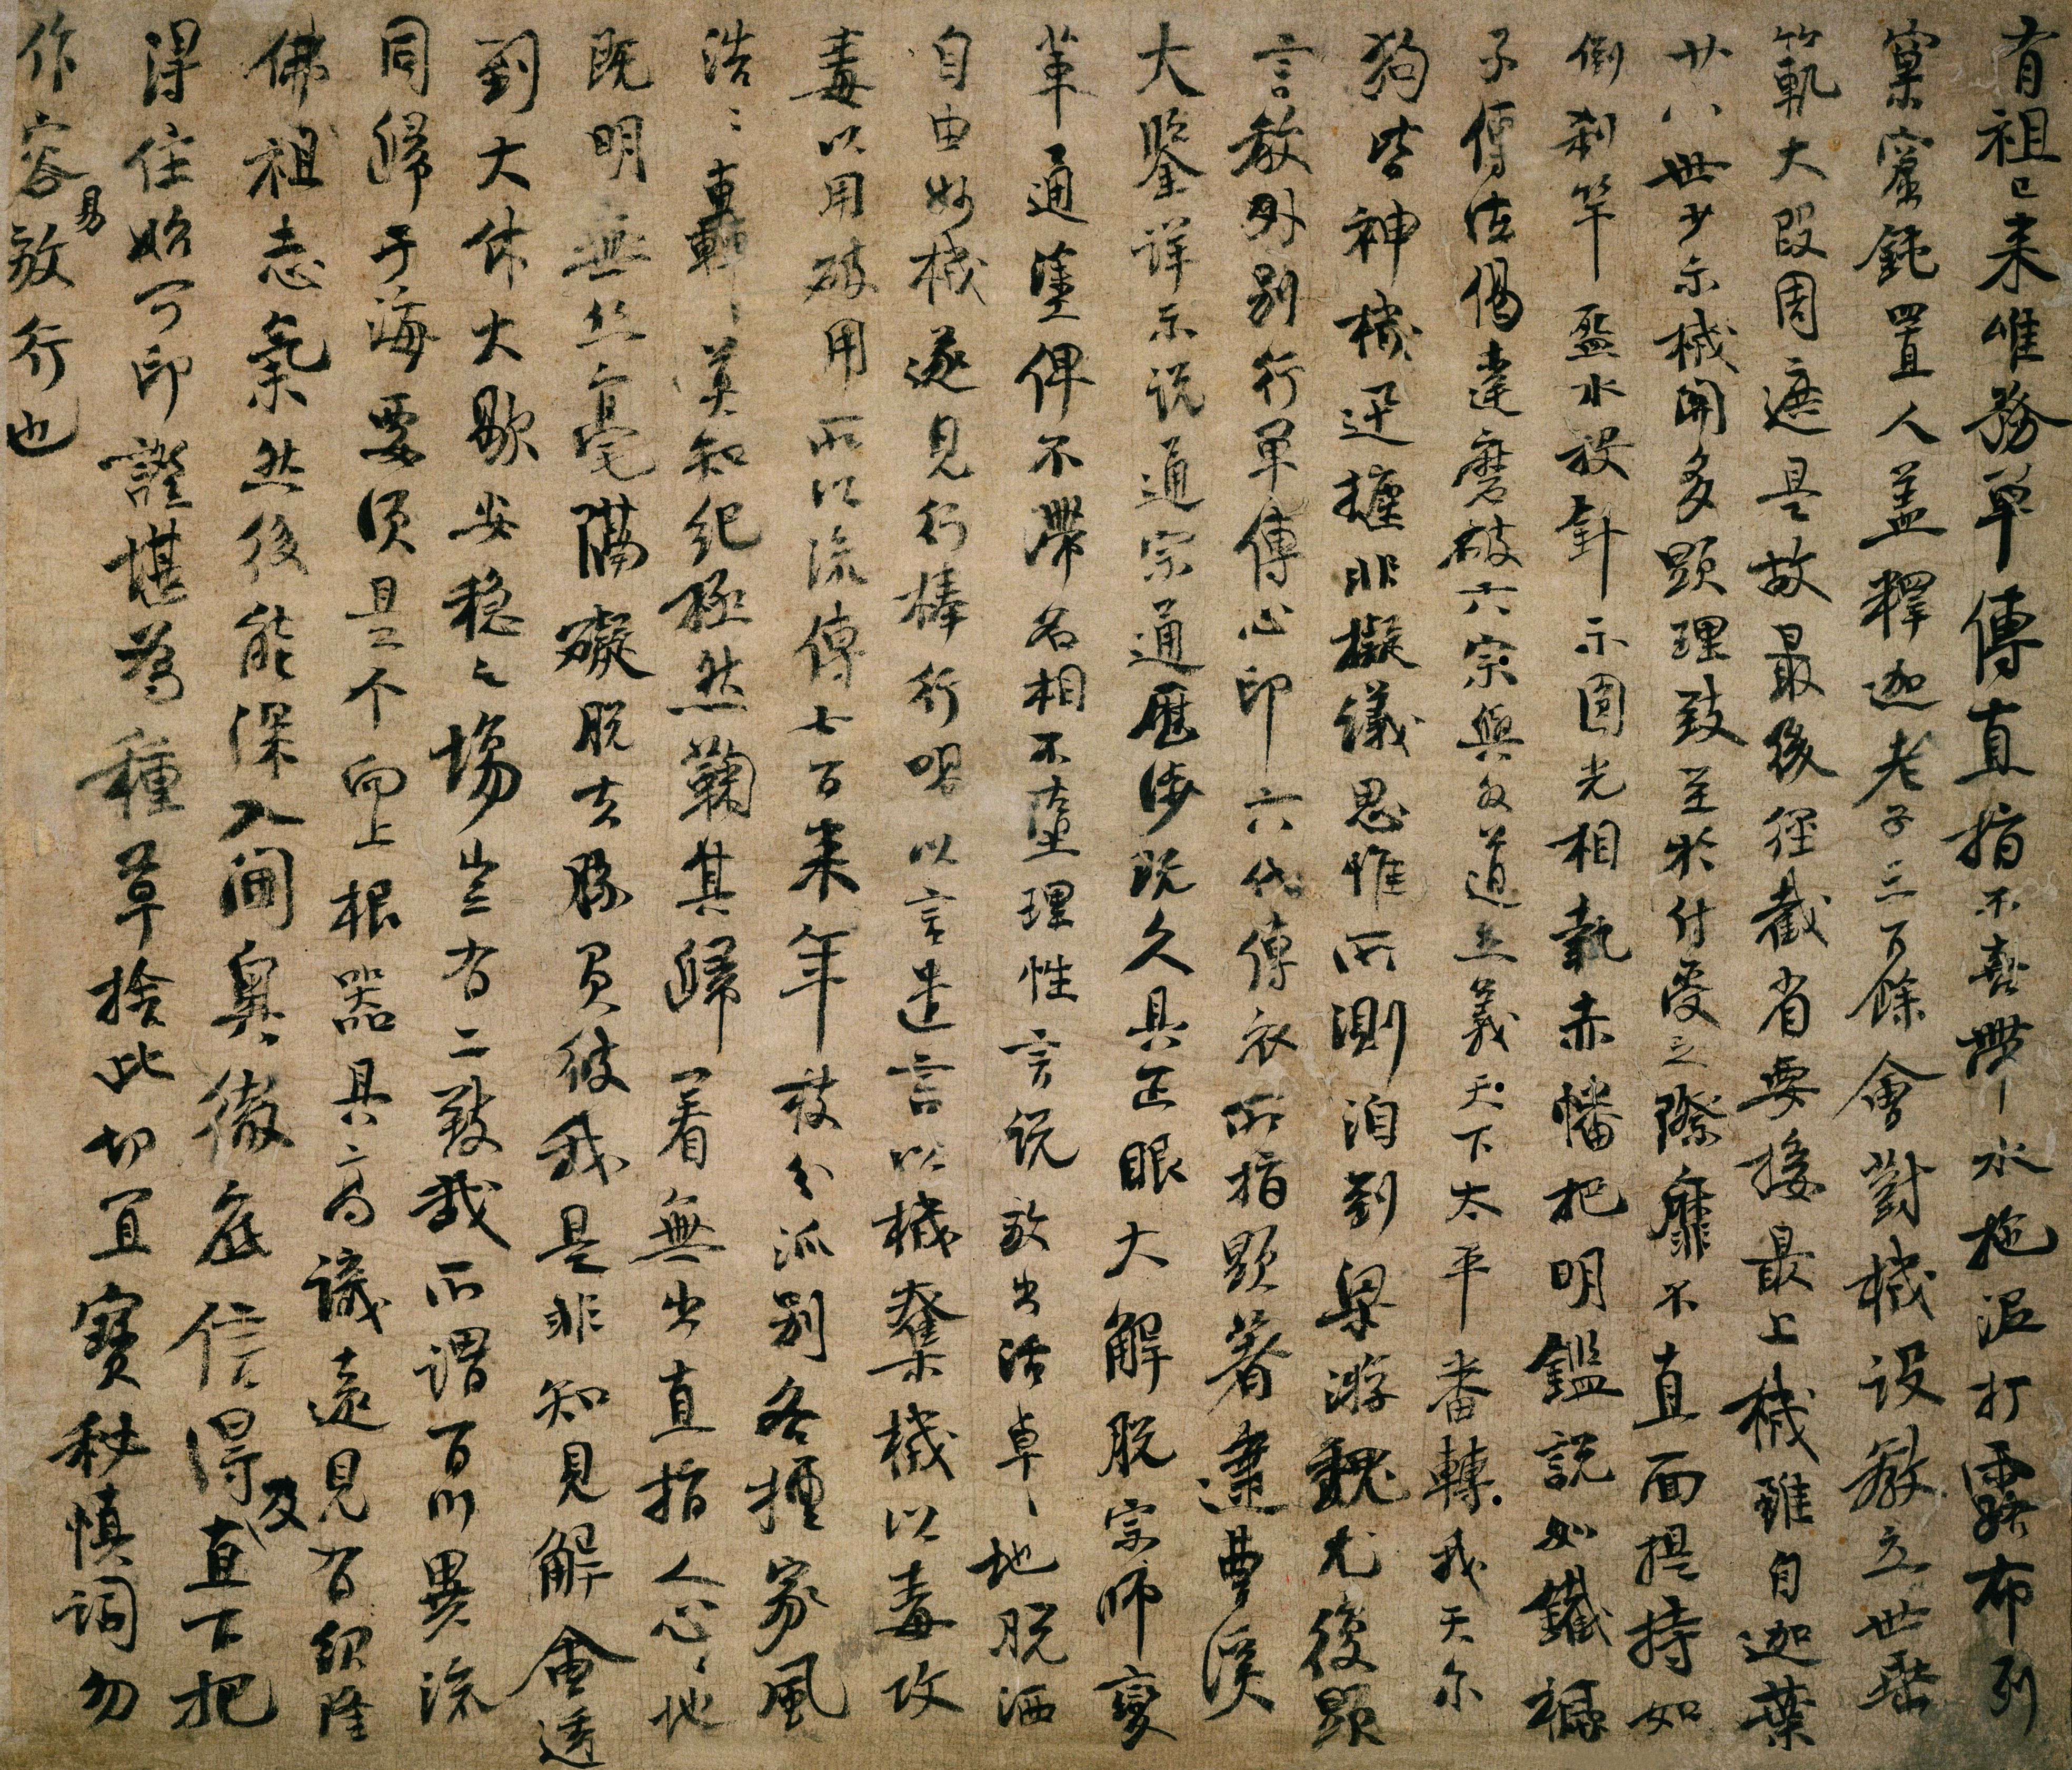 有祖已来唯務單傳直指不喜帶水拖泥打露布列
窠窟鈍置人盖釋迦老子三百餘會對機設教立世垂
範軌大段周遮是故最後徑截省要接最上機雖自迦葉
廿八世少示機関多顯理致至於付受之際靡不直面提持如
倒刹竿盋水投針示圓光相執赤幡把明鑑説如鐵橛
子傳法偈達磨破六宗與外道立義天下太平番轉我天尓
狗皆神機迅捷非擬議思惟所測洎到梁游魏尤復顯
言教外別行單傳心印六代傳衣所指顯著逮曹溪
大鑒詳示説通宗通歴涉既久具正眼大解脱宗師變
革通塗俾不滯名相不墮理性言説放出活卓〻地脱洒
自由妙機遂見行棒行喝以言遣言以機奪機以毒攻
毒以用破用所以流傳七百来年枝分派別各擅家風
浩〻轟〻莫知紀極然鞠其歸着無出直指人心〻地
既明無丝毫隔礙脱去勝負彼我是非知見解會透
到大休大歇安穩之場豈有二致哉所謂百川異流
同歸于海要須是个向上根器具高識遠見有紹隆
佛祖志氣然後能深入閫奥徹底信得及直下把
得住始可印證堪為種草捨此切宜寶秘慎詞勿
作容易放行也